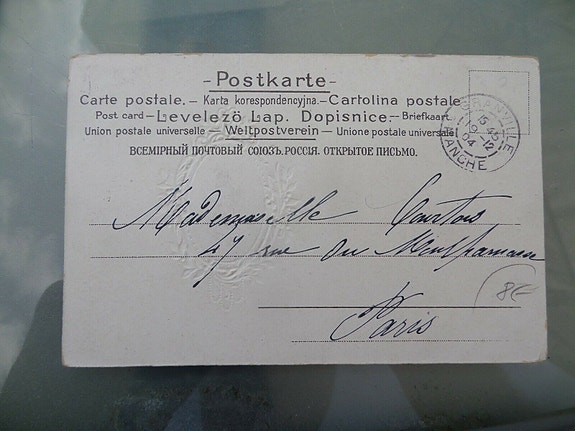 - Postkarte -
Carte postale. - Karta korespondencyjna. - Cartolina postale
Post card - Levelezö Lap. Dopisnice. - Briefkaart
Union postale universelle - Weltpostverein - Unione postale universale
ВСЕМІРНЫЙ ПОЧТОВЫЙ СОЮЗЪ. РОССІЯ. ОТКРЫТОЕ ПИСЬМО.
15 45
19-12
04
MANCHE
Mademoiselle Courtois
27 rue du Montparnasse
Paris
8€